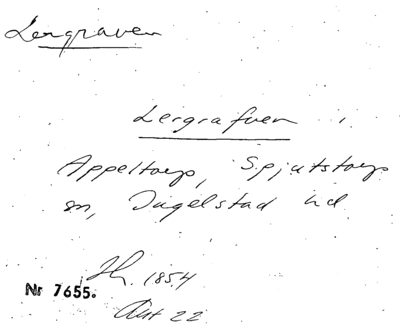 Lergraven
Lergrafven
Appeltorp, Spjutstorps
sn, Ingelstad hd
Jh. 1854
Akt 22
Nr 7655.